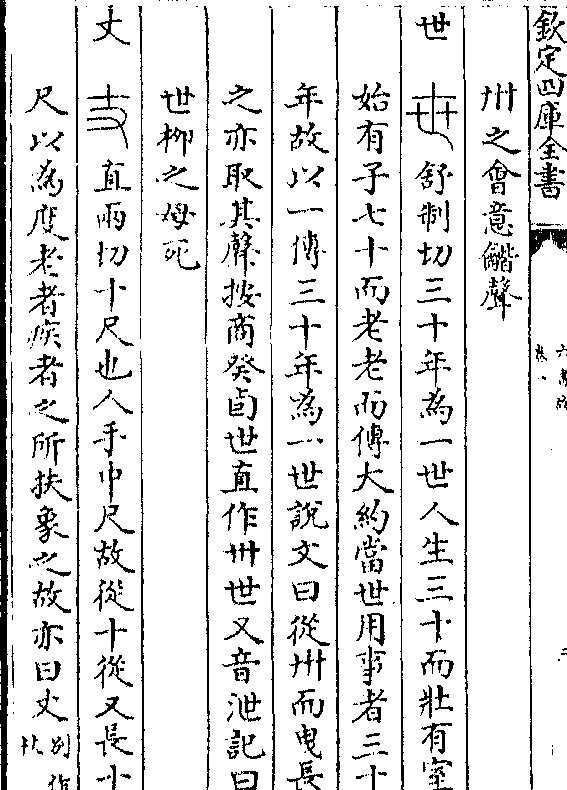 欽定四庫全書
卅之會意龤聲
世 舒制切三十年為一世人生三十而壯有室
始有子七十而老老而傳大約當世用事者三十
年故以一傳三十年為一世說文曰從卅而曳長
之亦取其聲按商癸卣世直作卅世又音泄記曰
世柳之母死
丈 直兩切十尺也人手巾尺故從十從又長十
尺以為度老者疾者之所扶象之故亦曰丈 別作杖